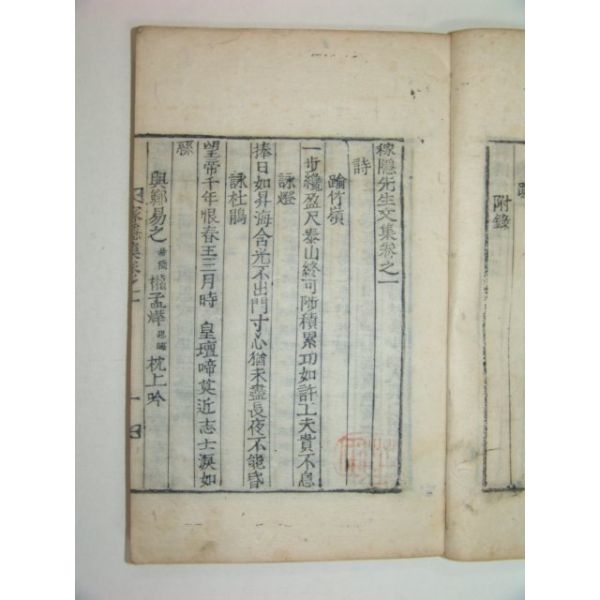 附錄
稼隱先生文集卷之一
詩
踰竹嶺
一步纔盈尺泰山終可陟積累功如許工夫貴不息
詠燈
捧日如昇海含光不出門寸心猶未盡長夜不能昏
詠杜鵑
望帝千年恨春王三月時 皇壇啼莫近志士淚如
縣
與鄭易之 權孟燁 枕上吟
稼隱集卷之一 一